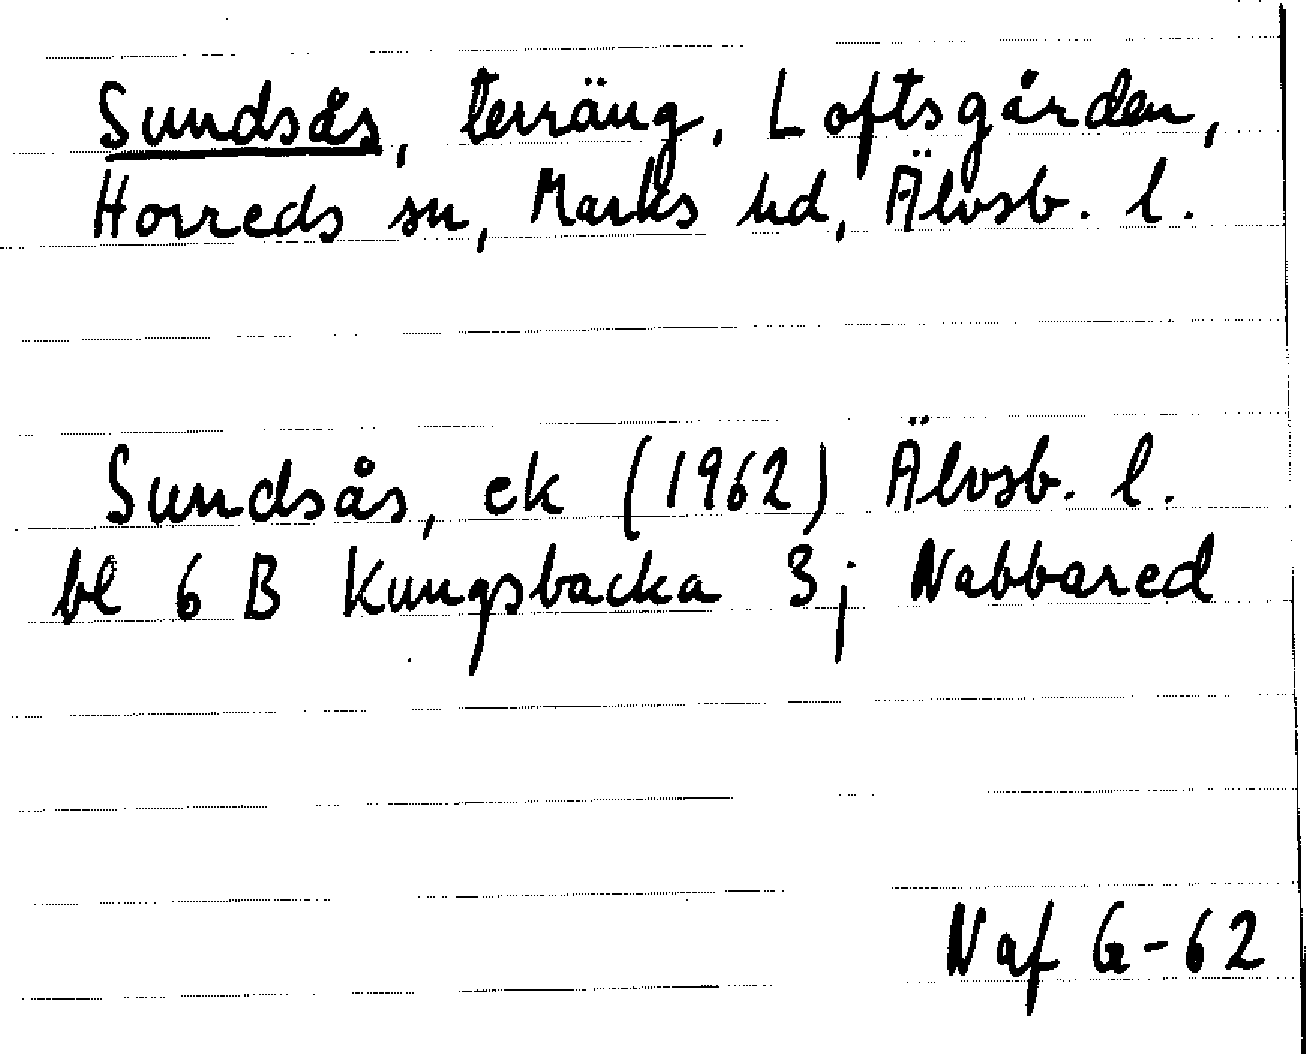 Sundsås, terräng, Loftsgården,
Horreds sn, Marks hd, Älvsb. l.
Sundsås, ek (1962) Älvsb. l.
bl 6 B Kungsbacka 3j Nabbared
Naf G-62